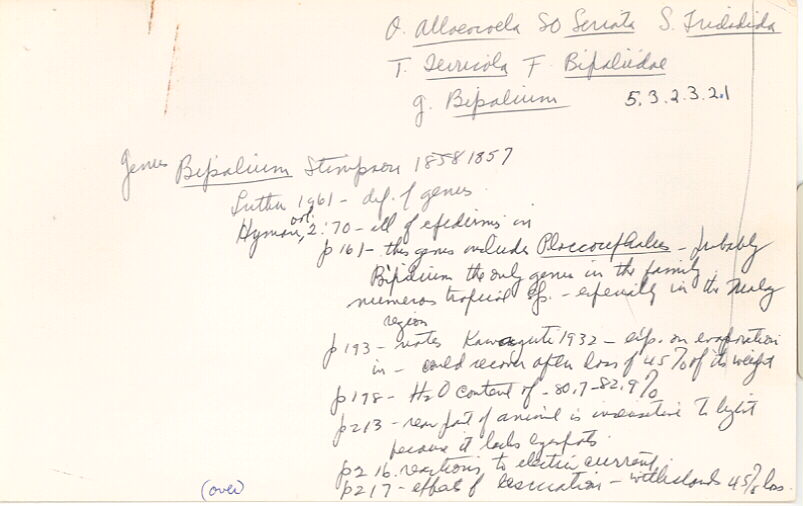 O. Alloeocoela SO Seriata S. Tricladida
T. Terricola F. Bipaliidae
g. Bipalium 5.3.2.3.2.1
Genus Bipalium Stimpson 1858 1857
Luther 1961 - def. of genus
Hyman, vol. 2: 70 - ill of epidermis in
p 161 - this genus includes Placocephalus - probably
Bipalium the only genus in the family
numerous tropical sps. - especially in the Malay
region
p 193 - notes Kawaguti 1932 - exp. on evaporation
in - could recover after loss of 45% of its weight
p 198 - H2O content of - 80.7-82.9%
p 213 - rear part of animal is insensitive to light
because it lacks eyespots
p 216. reactions to electric current.
p 217 - effect of desiccation - withstands 45% loss
(over)